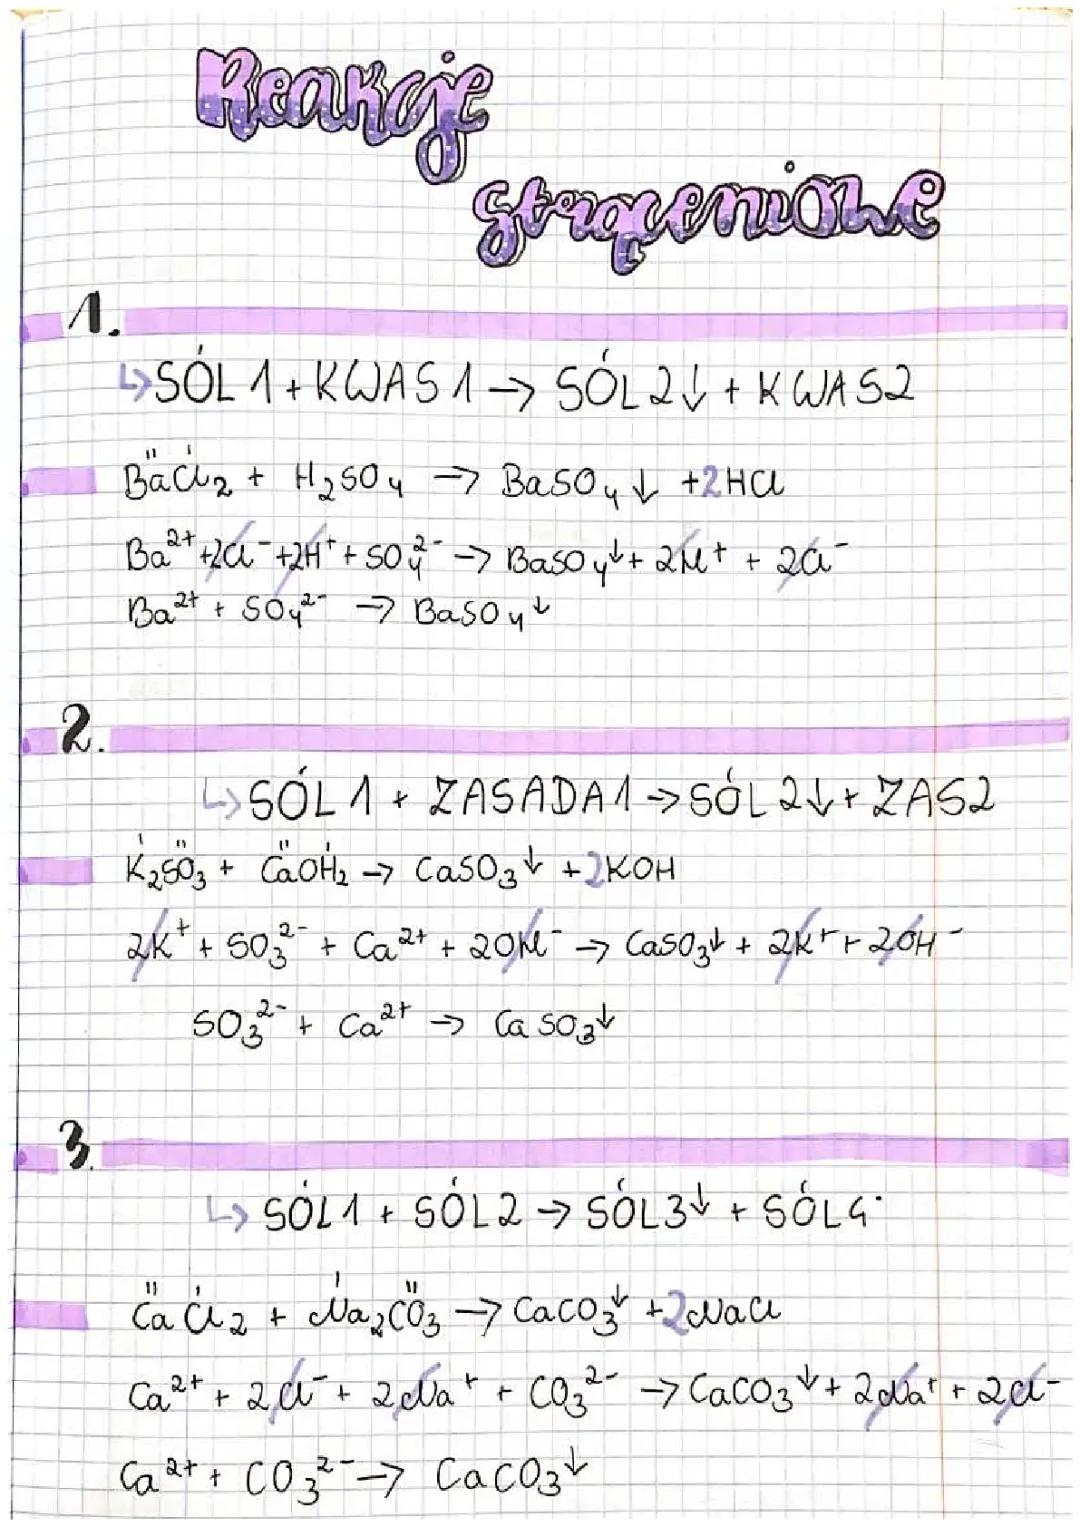 Reakcje
strąceniowe
1.
↳SÓL 1 + KWAS 1 → SÓL 2↓ + KWAS2
BaCl₂ + H₂SO₄ → BaSO₄↓ +2HCl
Ba²⁺ +2Cl⁻ +2H⁺ + SO₄²⁻ → BaSO₄↓ + 2H⁺ + 2Cl⁻
Ba²⁺ + SO₄²⁻ → BaSO₄↓
2.
↳SÓL 1 + ZASADA1 → SÓL 2↓ + ZAS2
K₂SO₃ + CaOH₂ → CaSO₃↓ +2KOH
2K⁺ + SO₃²⁻ + Ca²⁺ + 2OH⁻ → CaSO₃↓ + 2K⁺ + 2OH⁻
SO₃²⁻ + Ca²⁺ → CaSO₃↓
3.
↳ SÓL1 + SÓL2 → SÓL3↓ + SÓL4
CaCl₂ + Na₂CO₃ → CaCO₃↓ +2NaCl
Ca²⁺ + 2Cl⁻ + 2Na⁺ + CO₃²⁻ → CaCO₃↓ + 2Na⁺ + 2Cl⁻
Ca²⁺ + CO₃²⁻ → CaCO₃↓